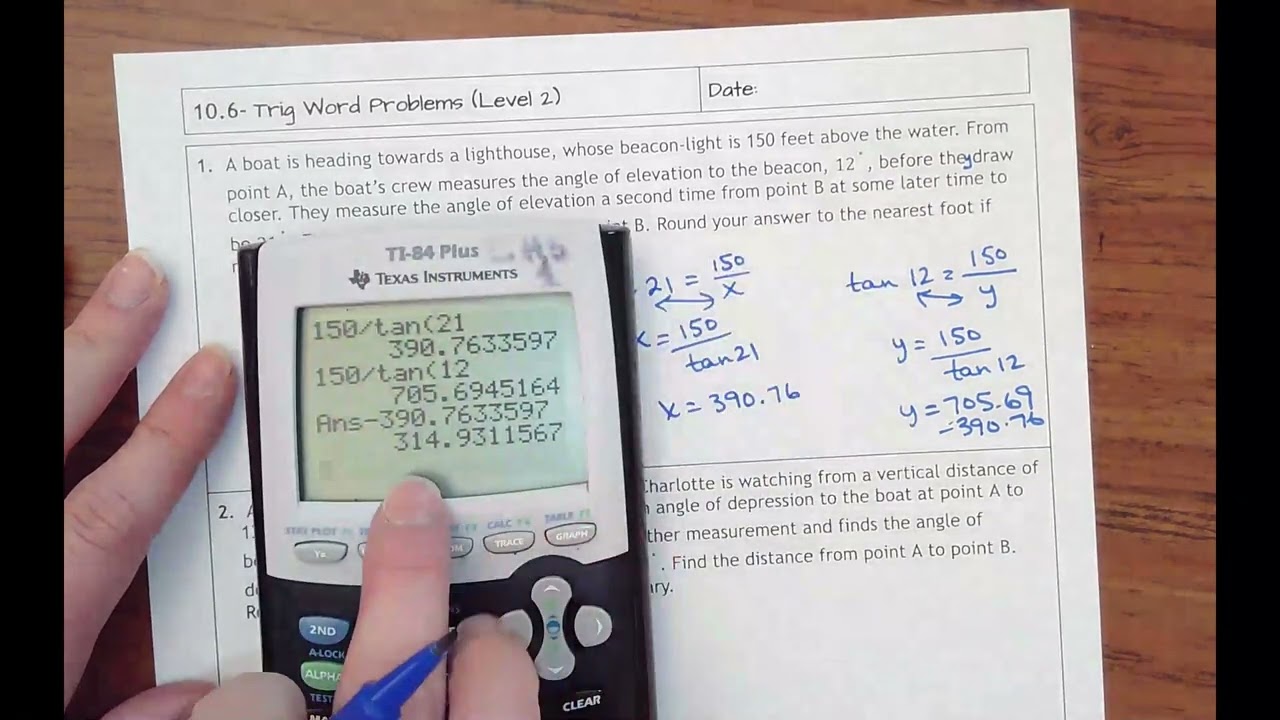 10.6- Trig Word Problems (Level 2)
Date:
1. A boat is heading towards a lighthouse, whose beacon-light is 150 feet above the water. From
point A, the boat's crew measures the angle of elevation to the beacon, 12°, before they draw
closer. They measure the angle of elevation a second time from point B at some later time to
be
B. Round your answer to the nearest foot if
TI-84 Plus
TEXAS INSTRUMENTS
150/tan(21
390.7633597
150/tan(12
705.6945164
Ans-390.7633597
314.9311567
21 = 150/x
x = 150/tan21
x = 390.76
tan 12 = 150/y
y = 150/tan 12
y = 705.69
-390.76
2.
Charlotte is watching from a vertical distance of
angle of depression to the boat at point A to
measurement and finds the angle of
. Find the distance from point A to point B.
STAT PLOT
Y=
CALC
TRACE
TABLE
GRAPH
2ND
A-LOCK
ALPHA
TEST
CLEAR